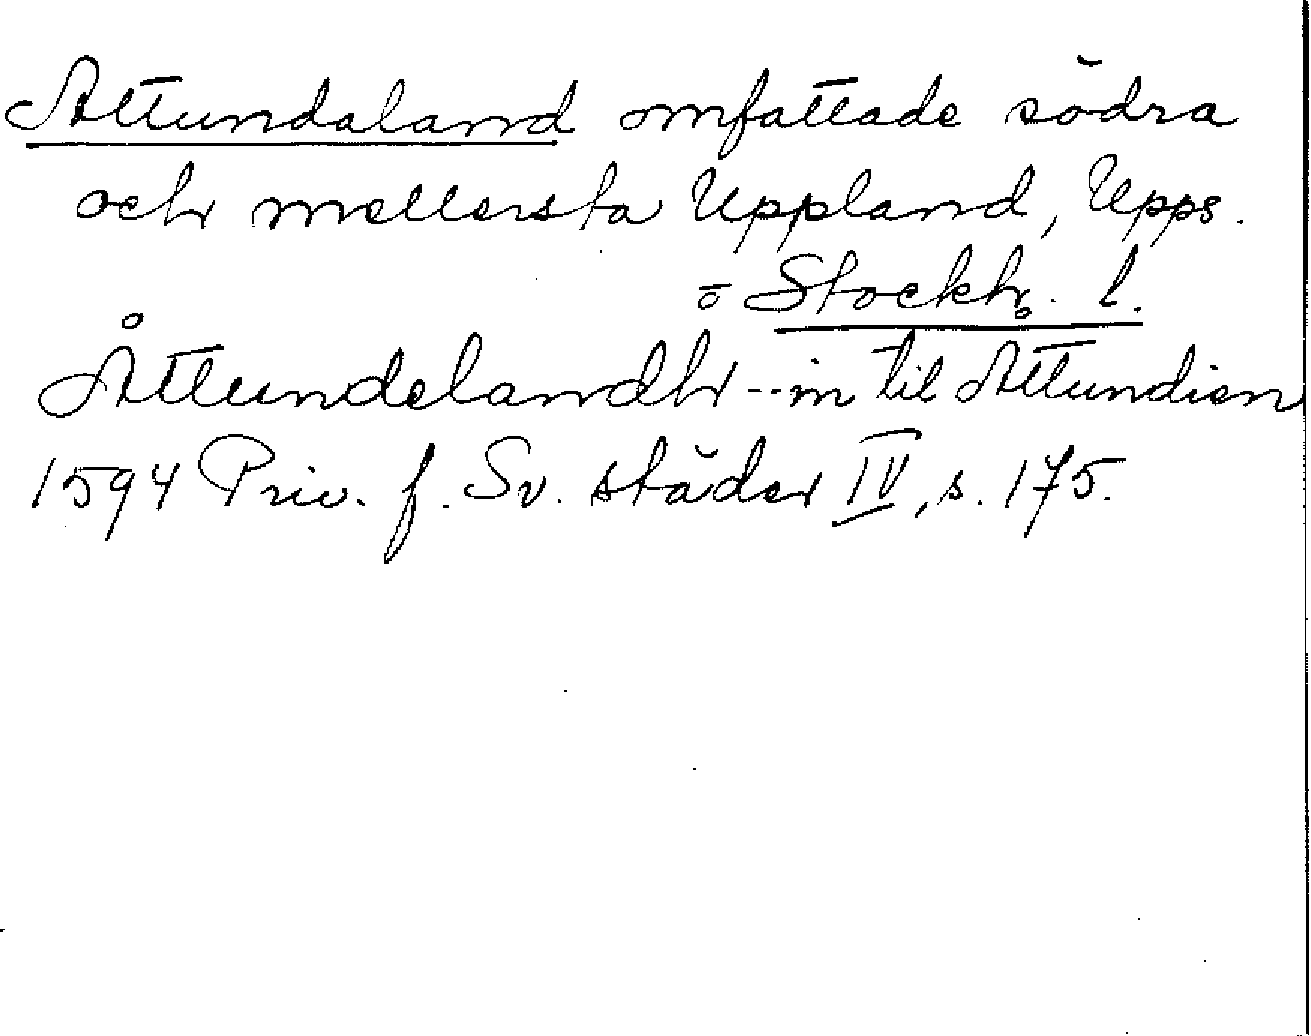 Attundaland omfattade södra
och mellersta Uppland, Upps.
o Stockh. l.
Åttundelandh -- in til Attundien
1594 Priv. f. Sv. städer IV, s. 175.